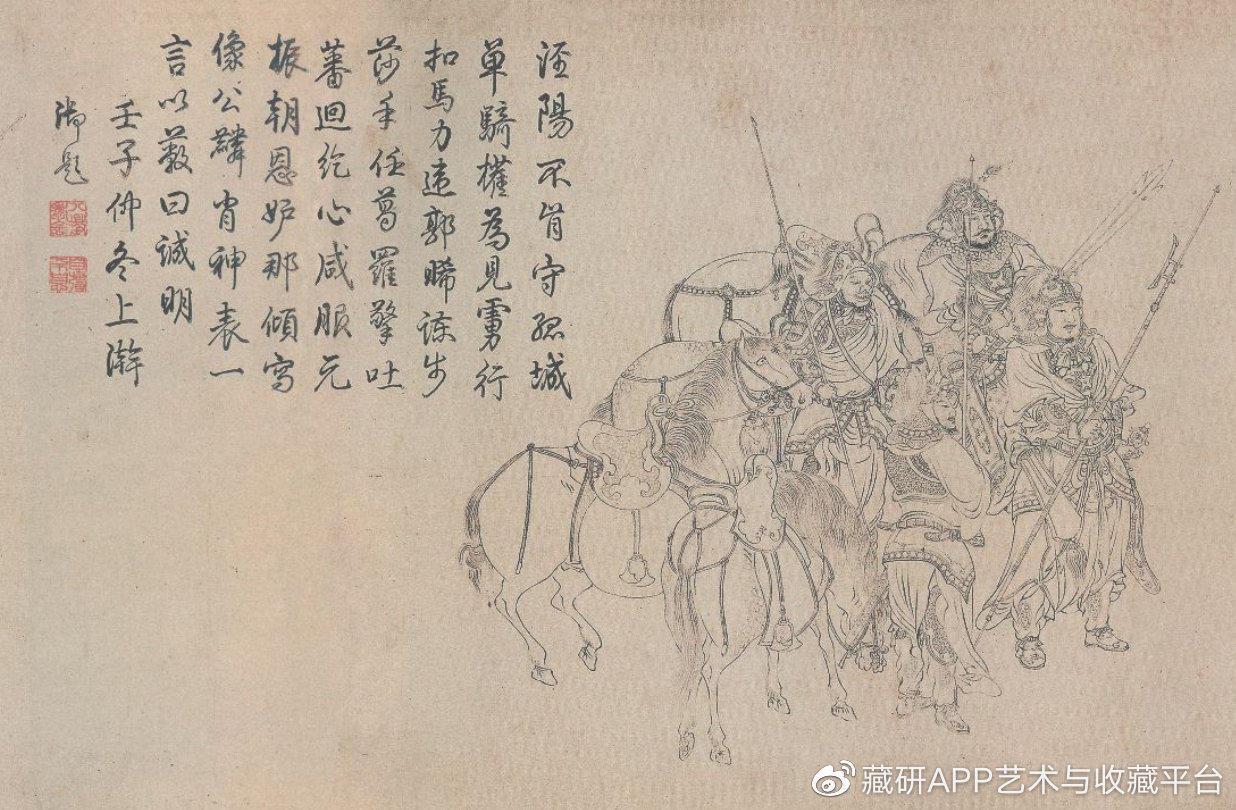 涇陽不肯守孤城
單騎權為見虜行
扣馬力違郭晞諫步
莎手任葛羅擎吐
蕃迴紇心咸服元
振朝恩妒那傾寫
像公麟肖神表一
言以蔽曰誠明
壬子仲冬上澣
御題
八徵耄念
自彊不息
藏研APP艺术与收藏平台